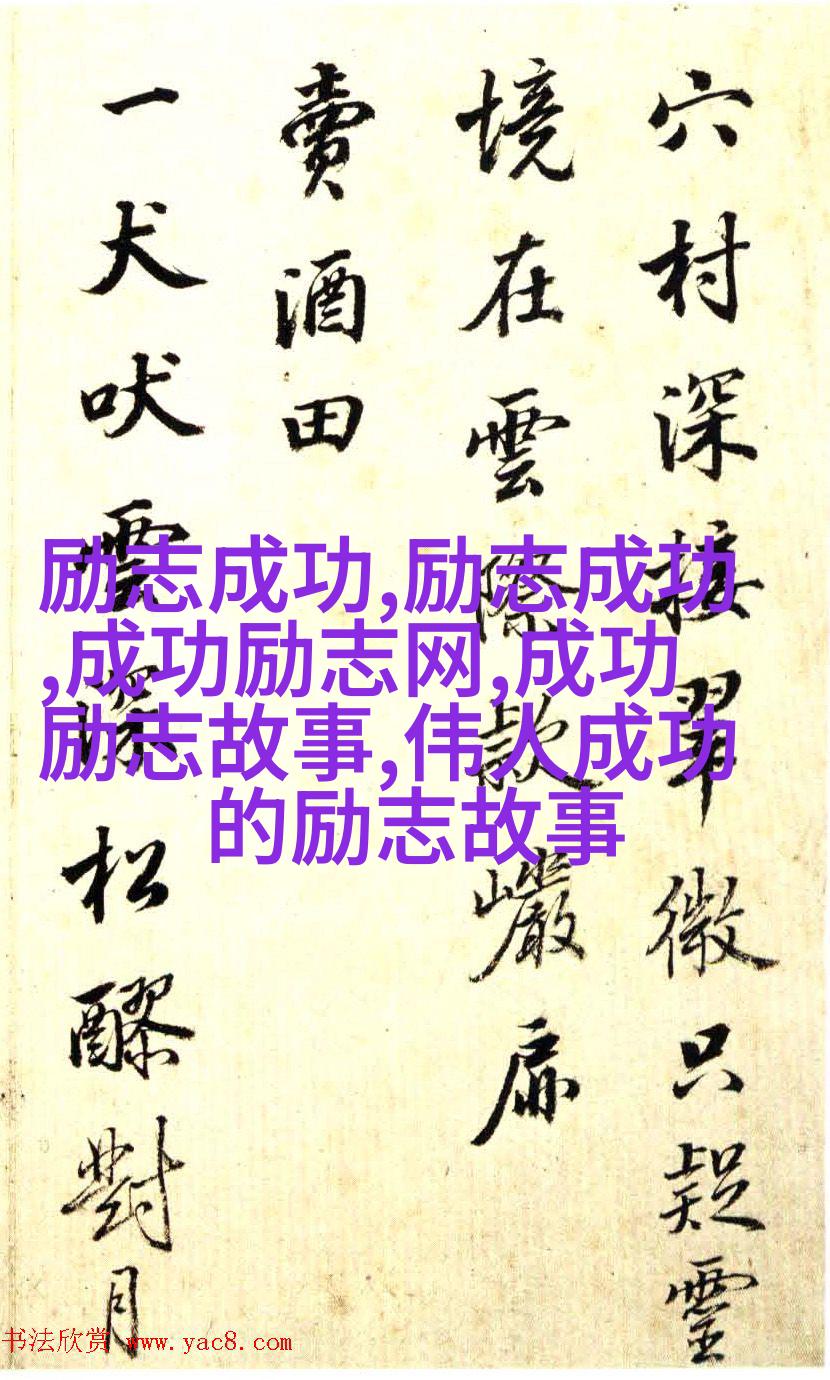 穴村深接翠微只疑靈
境在雲際款巖扉
賣酒田
一犬吠雲深松醪對月
励志成功,励志成功
,成功励志网,成功
励志故事,伟人成功
的励志故事
书法欣赏 www.yac8.com